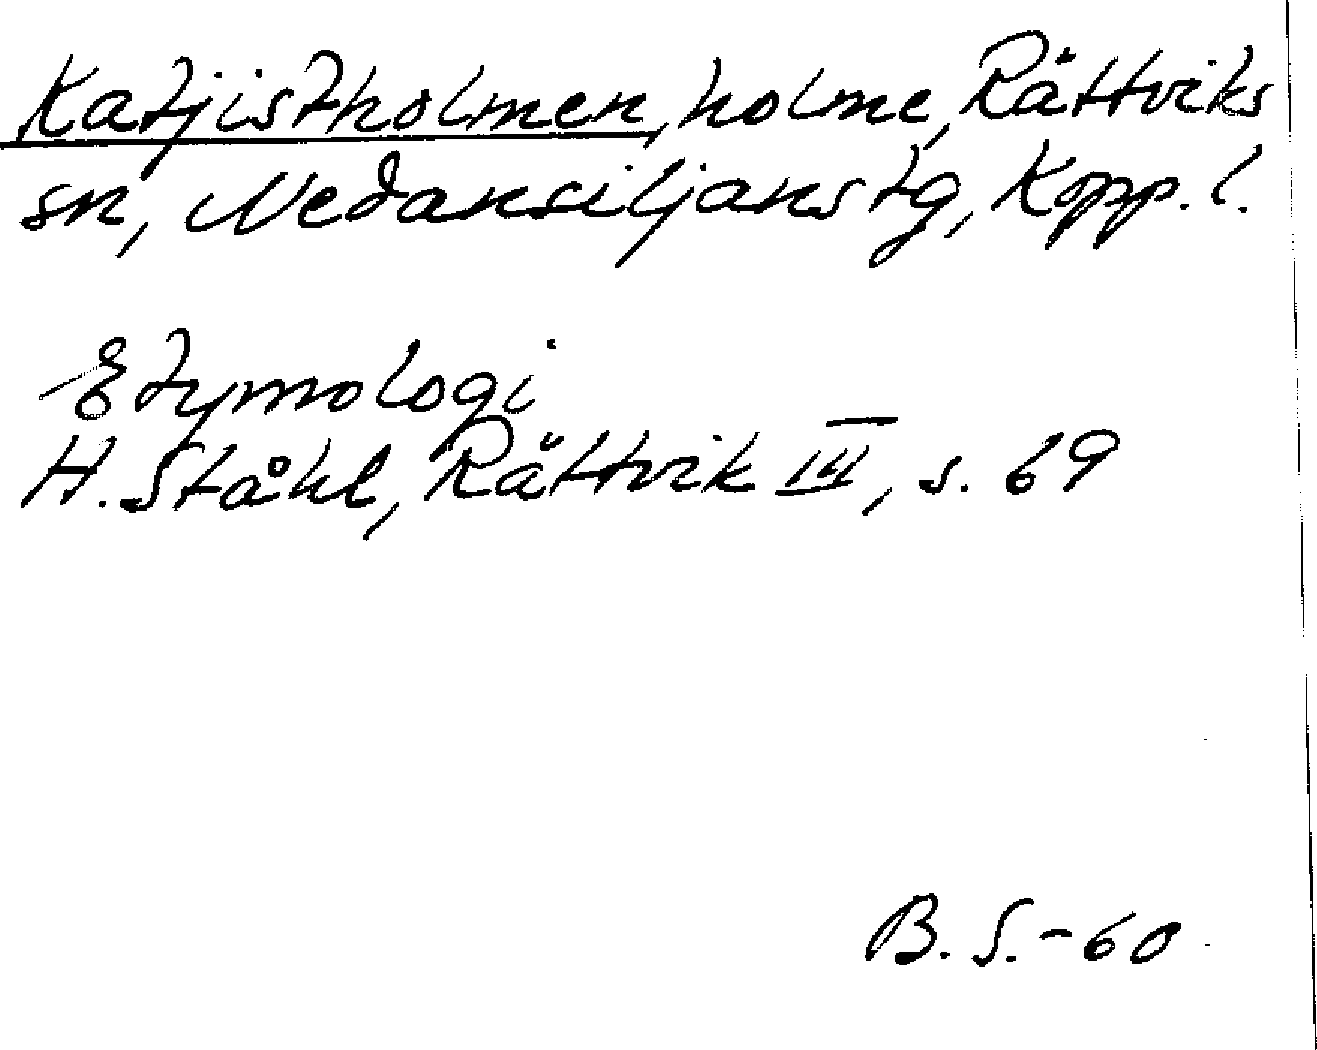 Katjistholmen, holme, Rättviks
sn, Nedansiljans tg, Kopp. l.
Etymologi
H. Ståhl, Rättvik III, s. 69
B. S. - 60